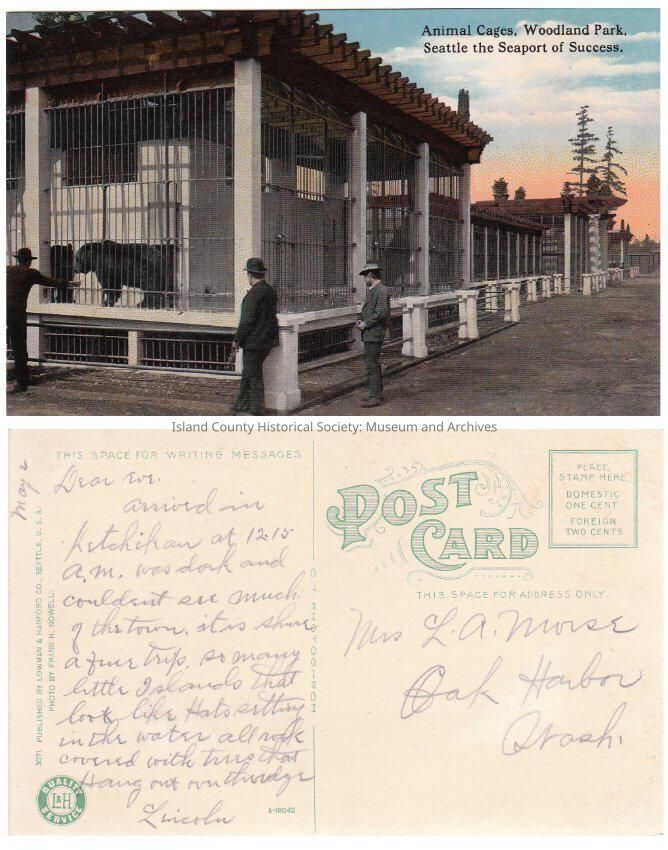 Animal Cages, Woodland Park,
Seattle the Seaport of Success.
Island County Historical Society: Museum and Archives
THIS SPACE FOR WRITING MESSAGES
May 2
Dear Eve.
arrived in
Ketchikan at 12:15
A.M. was dark and
couldent see much
of the town. it is shure
a fine trip. so many
little Islands that
look like Hats setting
in the water all rock
covered with trees that
Hang out over the edge
Lincoln
3071 PUBLISHED BY LOWMAN & HANFORD CO., SEATTLE, U.S.A.
PHOTO BY FRANK H. NOWELL.
QUALITY
L&H
SERVICE
A-18042
C.T. PHOTOCHROM
POST
CARD
PLACE
STAMP HERE
DOMESTIC
ONE CENT
FOREIGN
TWO CENTS
THIS SPACE FOR ADDRESS ONLY.
Mrs L.A. Morse
Oak Harbor
Wash.